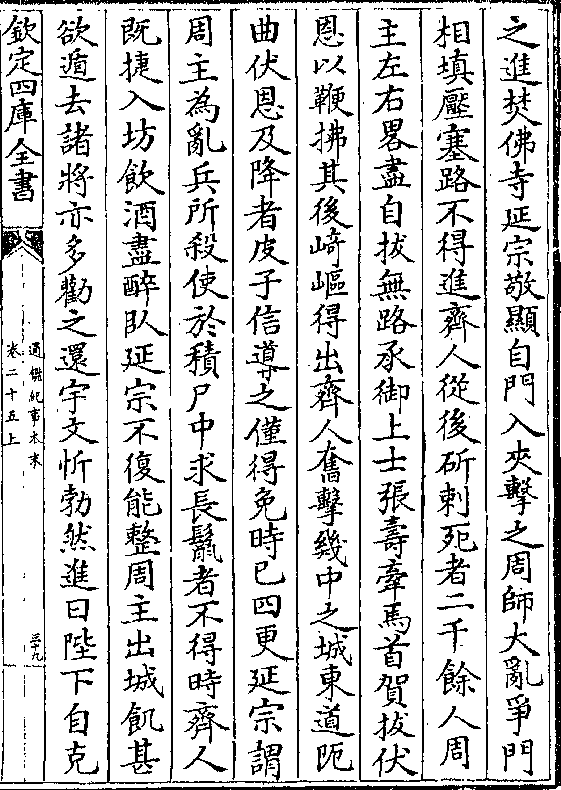 之進焚佛寺延宗敬顯自門入夾擊之周師大亂爭門
相填壓塞路不得進齊人從後斫刺死者二千餘人周
主左右畧盡自拔無路承御上士張壽牽馬首賀拔伏
恩以鞭拂其後崎嶇得出齊人奮擊幾中之城東道阨
曲伏恩及降者皮子信導之僅得免時已四更延宗謂
周主為亂兵所殺使於積尸中求長鬛者不得時齊人
既捷入坊飲酒盡醉臥延宗不復能整周主出城飢甚
欲遁去諸將亦多勸之還宇文忻勃然進曰陛下自克
欽定四庫全書
通鑑紀事本末
卷二十五上
三十九